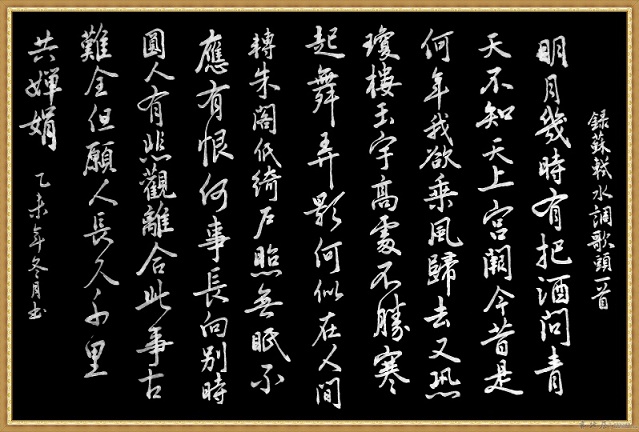 錄蘇軾水調歌頭一首
明月幾時有把酒問青
天不知天上宮闕今昔是
何年我欲乘風歸去又恐
瓊樓玉宇高處不勝寒
起舞弄影何似在人間
轉朱閣低綺戶照無眠不
應有恨何事長向別時
圓人有悲觀離合此事古
難全但願人長久千里
共嬋娟
乙未年冬月書